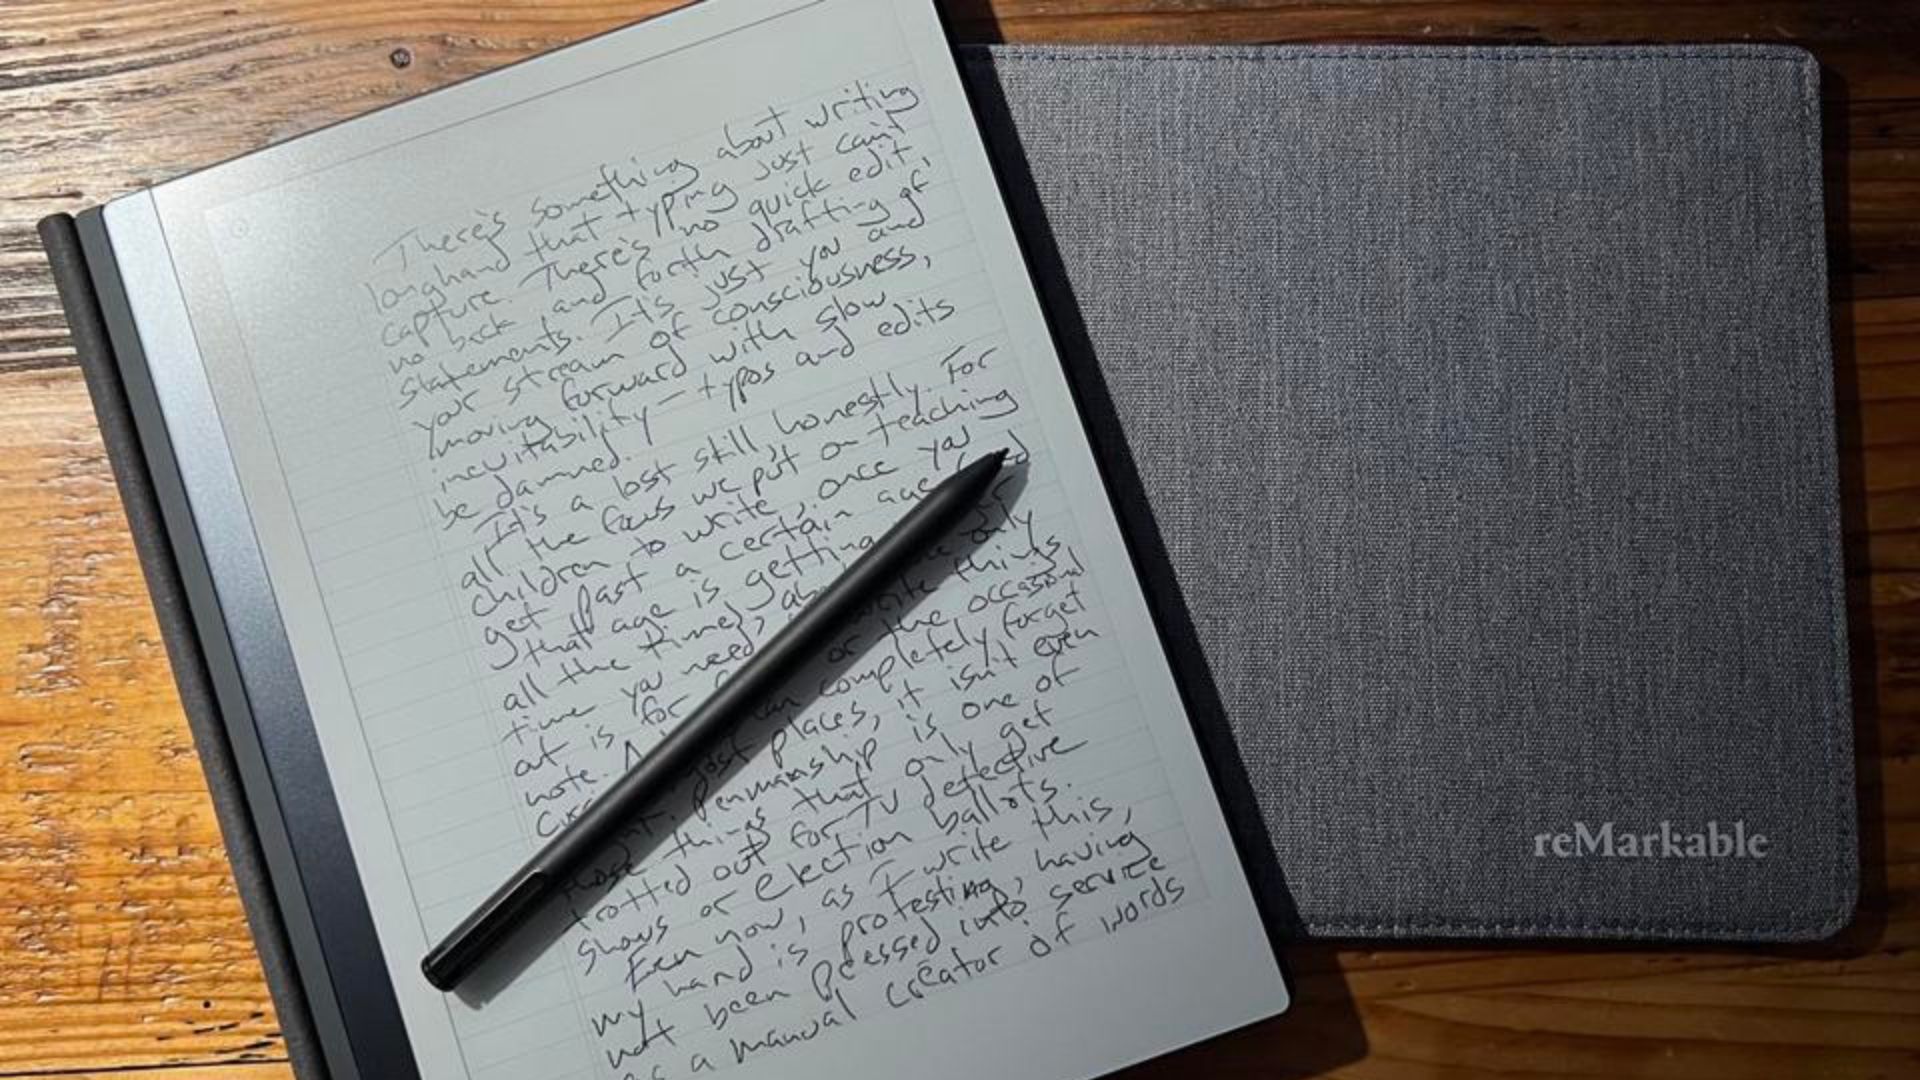 There's something about writing
longhand that typing just can't
capture. There's no quick edit,
no back and forth drafting of
statements. It's just you and
your stream of consciousness,
moving forward with slow
inevitability – typos and edits
be damned.
It's a lost skill, honestly. For
all the focus we put on teaching
children to write, once you
get past a certain age (and
that age is getting
all the time), only
time you need write things
out is for or the occasional
note. can completely forget
most places, it isn't even
Penmanship is one of
those things that only get
trotted out for TV detective
shows or election ballots.
Even now, as I write this,
my hand is protesting, having
not been pressed into service
as a manual creator of words
reMarkable